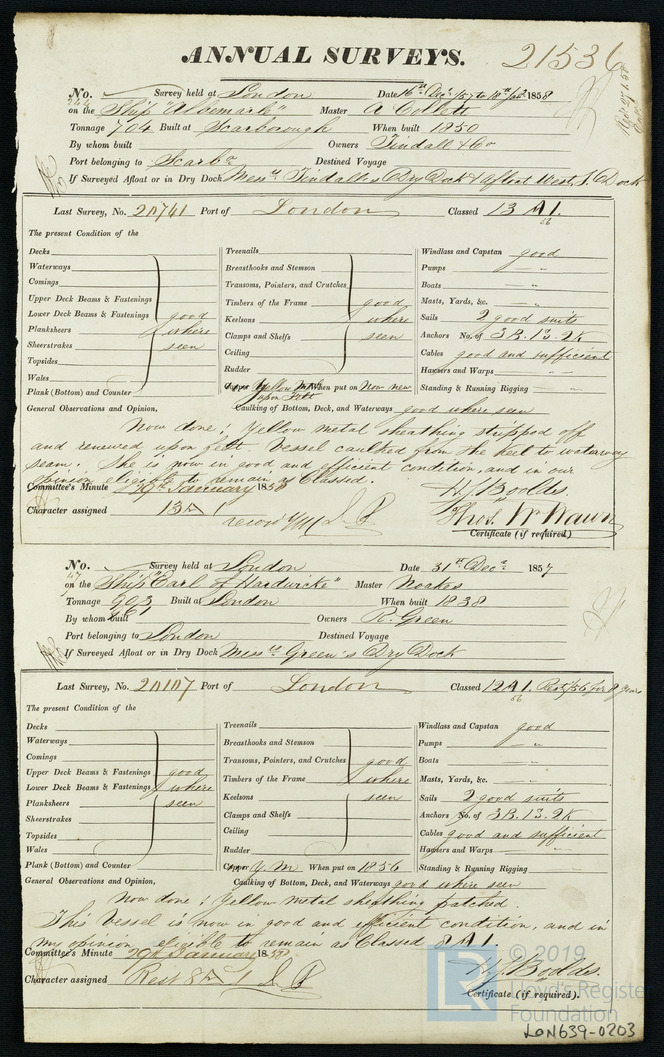 ANNUAL SURVEYS. 21536
No. Survey held at London Date 16th Decr /57 to 18th Jany 1858
on the Ship "Albemark" Master A Collett
Tonnage 704 Built at Scarborough When built 1850
By whom built Owners Tindall & Co
Port belonging to Scarbo Destined Voyage
If Surveyed Afloat or in Dry Dock Messrs Tindall's Dry Dock & Afloat West I. Dock
Last Survey, No. 20741 Port of London Classed 13 A1.
56
The present Condition of the
Decks
Waterways
Comings
Upper Deck Beams & Fastenings
Lower Deck Beams & Fastenings good
Planksheers where
Sheerstrakes seen
Topsides
Wales
Plank (Bottom) and Counter
Treenails
Breasthooks and Stemson
Transoms, Pointers, and Crutches
Timbers of the Frame good
Keelsons where
Clamps and Shelfs seen
Ceiling
Rudder
Copper Yellow Metal When put on Now new
upon Felt
Windlass and Capstan good
Pumps "
Boats "
Masts, Yards, &c. "
Sails 2 good suits
Anchors No. of 3B. 1S. 2K
Cables good and sufficient
Hawsers and Warps "
Standing & Running Rigging "
General Observations and Opinion, Caulking of Bottom, Deck, and Waterways good where seen
Now done; Yellow metal sheathing stripped off
and renewed upon felt. Vessel caulked from the keel to waterway
seam. She is now in good and efficient condition, and in our
opinion eligible to remain as Classed.
Committee's Minute 29th January 1858 H. J. Boolds.
Character assigned 13 A 1 Thos. W Wawn
Certificate (if required.)
No. Survey held at London Date 31st Decr 1857
on the Ship "Earl of Hardwicke" Master Noakes
Tonnage 903 Built at London When built 1838
861
By whom built Owners R. Green
Port belonging to London Destined Voyage
If Surveyed Afloat or in Dry Dock Messrs Green's Dry Dock
Last Survey, No. 20107 Port of London Classed 12 A1. Rest /56 for 8 Years
56
The present Condition of the
Decks
Waterways
Comings
Upper Deck Beams & Fastenings good
Lower Deck Beams & Fastenings where
Planksheers seen
Sheerstrakes
Topsides
Wales
Plank (Bottom) and Counter
Treenails
Breasthooks and Stemson
Transoms, Pointers, and Crutches good
Timbers of the Frame where
Keelsons seen
Clamps and Shelfs
Ceiling
Rudder
Copper Y.M When put on 1856
Windlass and Capstan good
Pumps "
Boats "
Masts, Yards, &c. "
Sails 2 good suits
Anchors No. of 3B. 1S. 2K
Cables good and sufficient
Hawsers and Warps "
Standing & Running Rigging "
General Observations and Opinion, Caulking of Bottom, Deck, and Waterways good where seen
Now done; Yellow metal sheathing patched.
This Vessel is now in good and efficient condition, and in
my opinion eligible to remain as Classed 8 A1.
Committee's Minute 29th January 1858
Character assigned Rest 8 A 1 H. J. Boolds.
Certificate (if required).
© 2019
LR Lloyd's Register
Foundation
LON639-0203